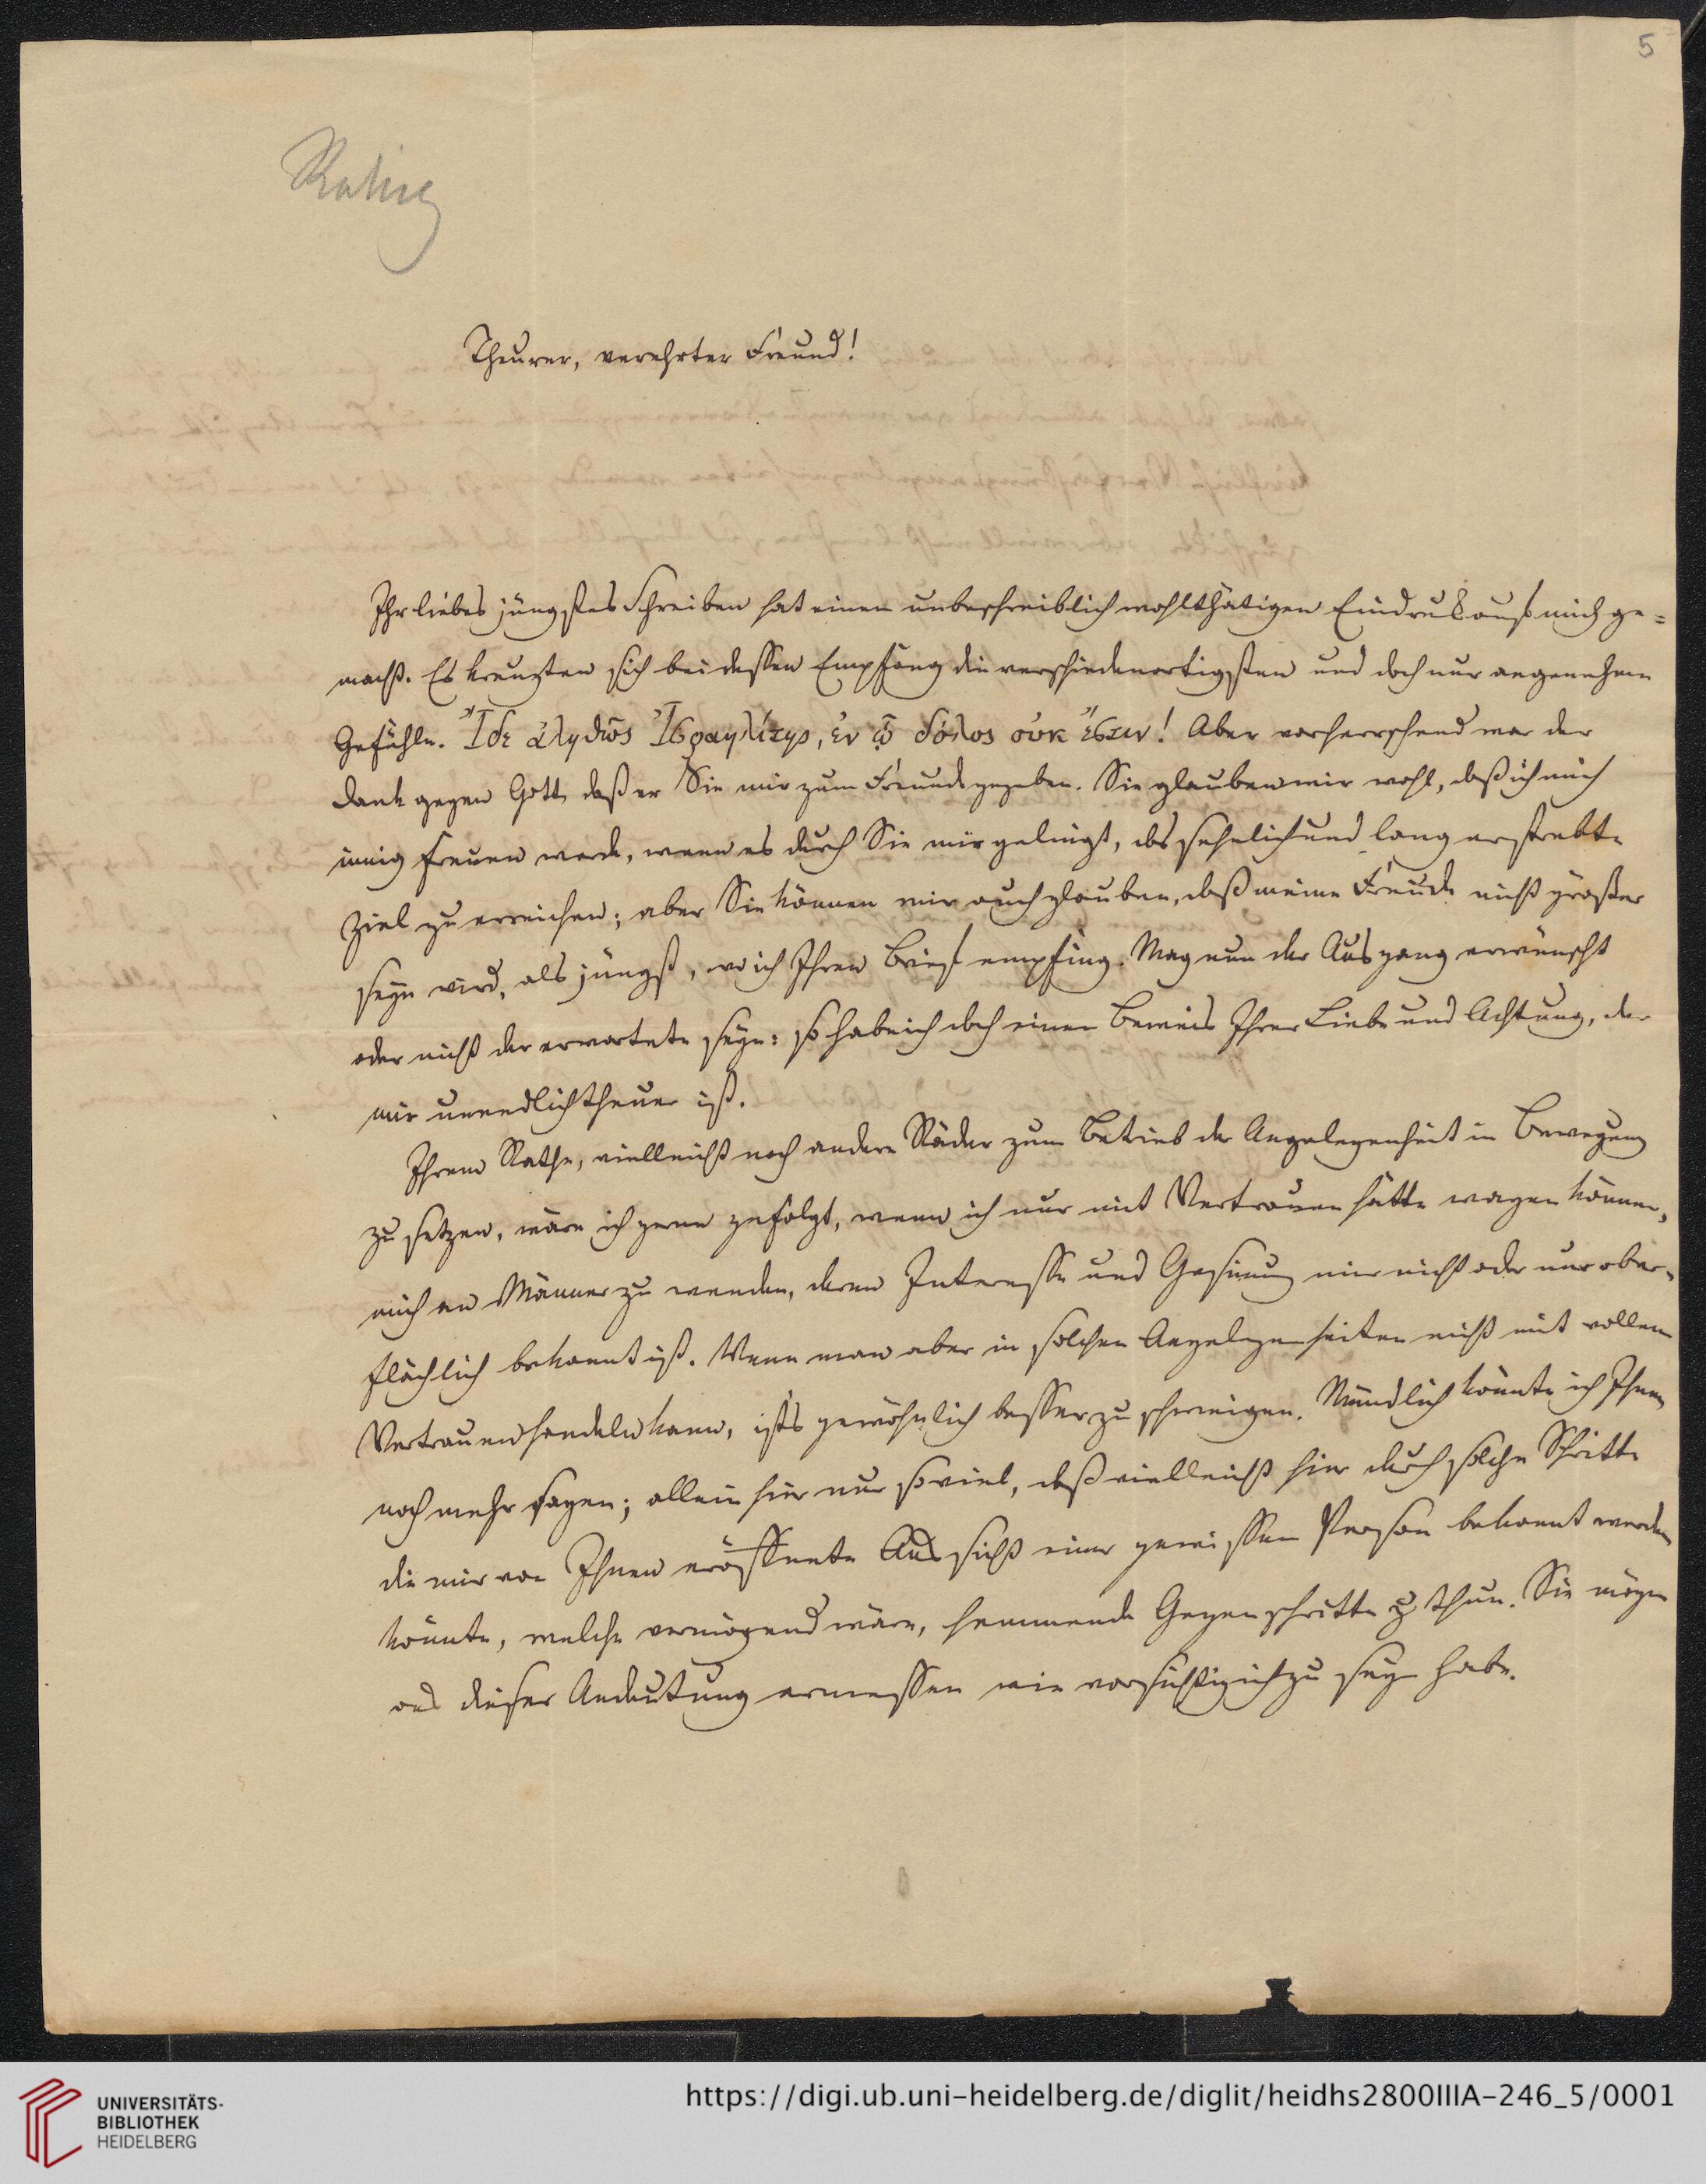 5
Theurer, verehrter Freund!
Ihr liebes jüngstes Schreiben hat einen unbeschreiblich wohlthätigen Eindruk auf mich ge=
macht. Es kreuzten sich bei dessen Empfang die verschiedenartigsten und doch nur angenehme
Gefühle. Ἴδε ἀληθῶς Ἰσραηλίτης, ἐν ᾧ δόλος οὐκ ἔστιν! Aber vorherrschend war der
Dank gegen Gott, daß er Sie mir zum Freunde gegeben. Sie glauben mir wohl, daß ich mich
innig freuen werde, wenn es durch Sie mir gelingt, das sehnlich und lang erstrebte
Ziel zu erreichen; aber Sie können mir auch glauben, daß meine Freude nicht größer
seyn wird, als jüngst, wo ich Ihren Brief empfing. Mag nun der Ausgang erwünscht
oder nicht der erwartete seyn: so habe ich doch einen Beweis Ihrer Liebe und Achtung, der
mir unendlich theuer ist.
Ihrem Rathe, vielleicht noch andere Räder zum Betrieb der Angelegenheit in Bewegung
zu setzen, wäre ich gerne gefolgt, wenn ich nur mit Vertrauen hätte wagen können,
mich an Männer zu wenden, deren Interesse und Gesinung mir nicht oder nur ober=
flächlich bekannt ist. Wenn man aber in solchen Angelegenheiten nicht mit vollem
Vertrauen handeln kann, ists gewöhnlich besser zu schweigen. Mündlich könnte ich Ihnen
noch mehr sagen; allein hier nur soviel, daß vielleicht hier durch solche Schritte
die mir von Ihnen eröffnete Aussicht einer gewissen Person bekannt werden
könnte, welche vermögend wäre, hemmende Gegenschritte zu thun. Sie mögen
aus dieser Andeutung ermessen wie vorsichtig ich zu seyn habe.
UNIVERSITÄTS-
BIBLIOTHEK
HEIDELBERG
https://digi.ub.uni-heidelberg.de/diglit/heidhs2800IIIA-246_5/0001